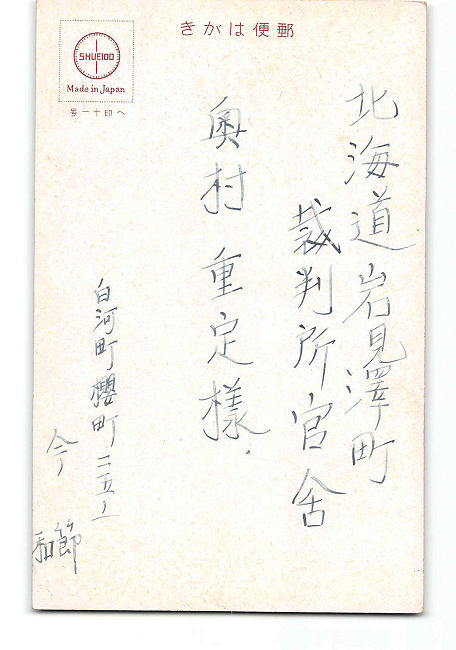 きがは便郵
SHUEIDO
Made in Japan
ヘ印十一号
北海道岩見澤町
裁判所官舎
奥村重定様
白河町櫻町二五ノ一
今
節